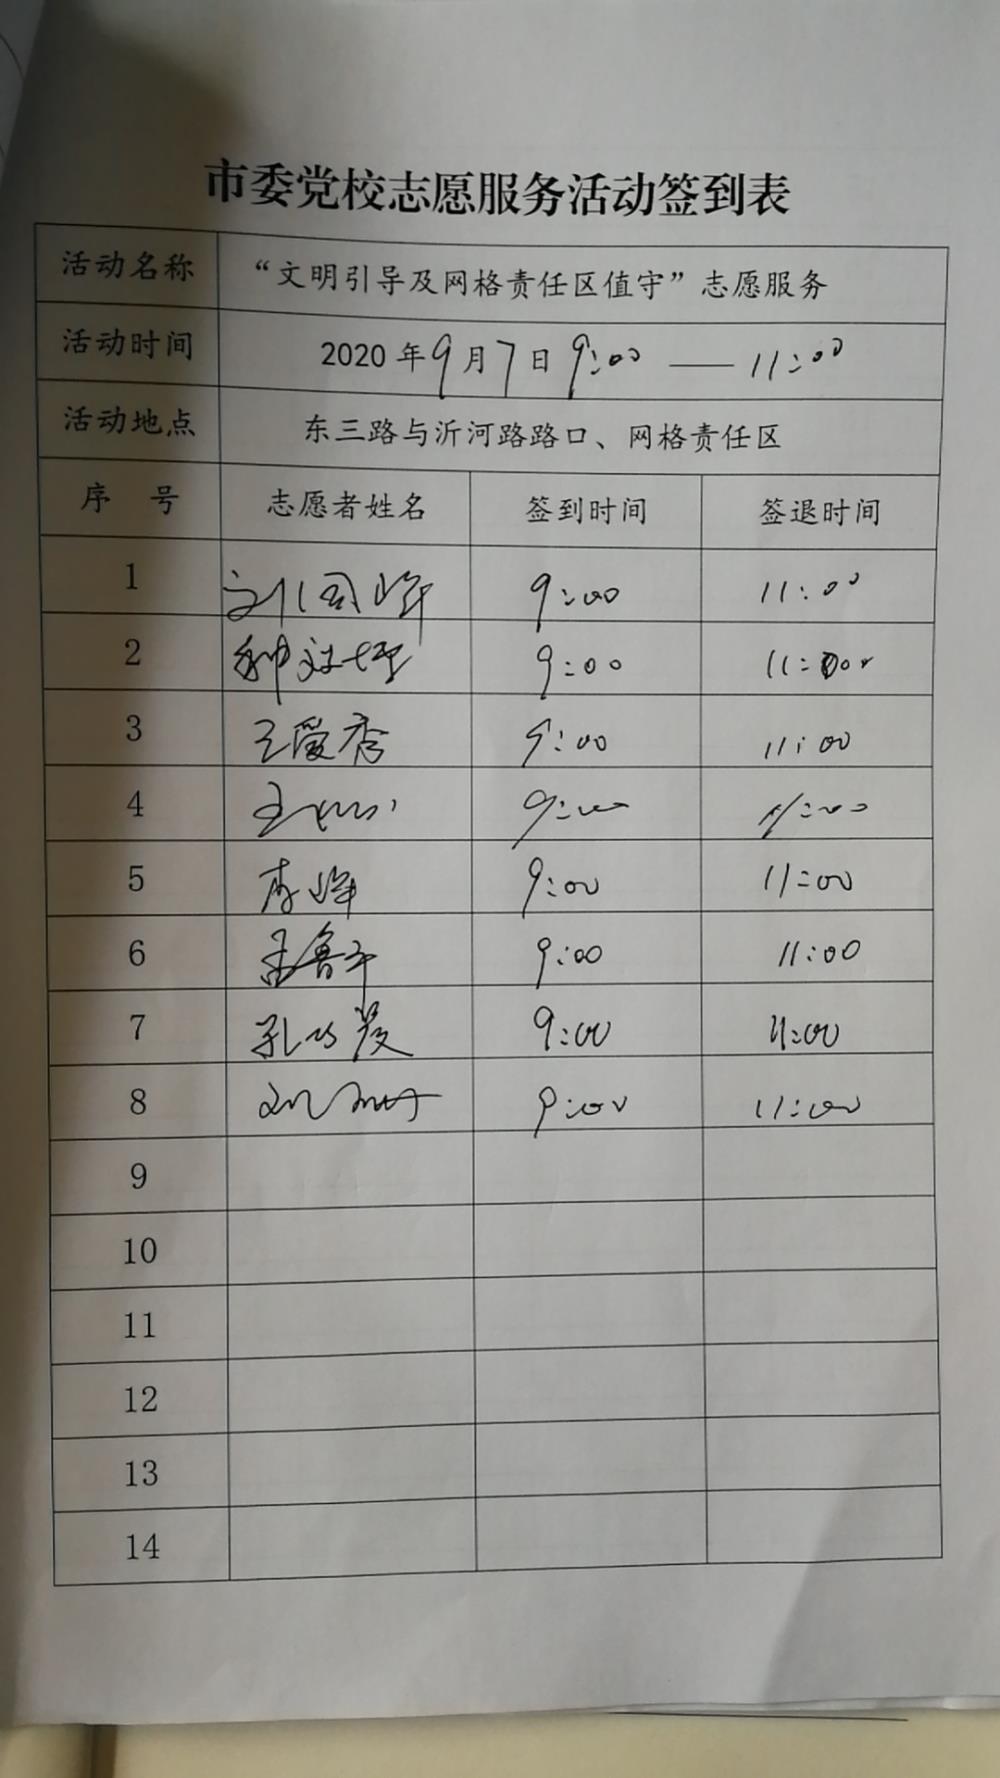 市委党校志愿服务活动签到表
活动名称 “文明引导及网格责任区值守”志愿服务
活动时间 2020年9月7日 9:00 —— 11:00
活动地点 东三路与沂河路路口、网格责任区
序 号 志愿者姓名 签到时间 签退时间
1 刘国峰 9:00 11:00
2 9:00 11:00
3 王爱香 9:00 11:00
4 王 9:00 11:00
5 李峰 9:00 11:00
6 王鲁平 9:00 11:00
7 孔 9:00 11:00
8 刘 9:00 11:00
9
10
11
12
13
14